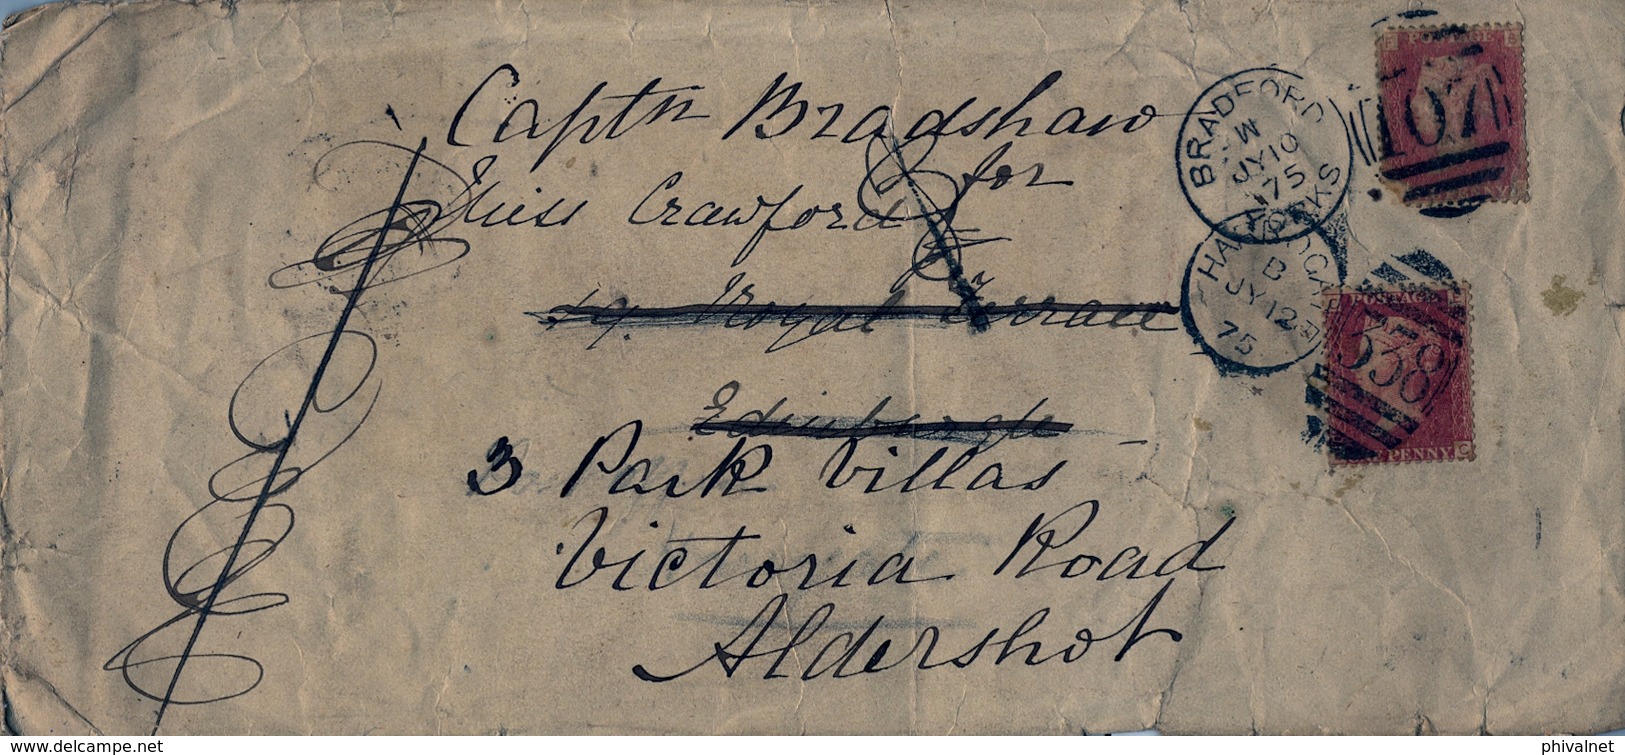 Captn Bradshaw
for
Miss Crawford
19 Royal Terrace
Edinburgh
3 Park Villas
Victoria Road
Aldershot
BRADFORD YORKS
W
JY 10
75
HARROGATE
B
JY 12
75
POSTAGE
107
POSTAGE
338
PENNY
C
www.delcampe.net
phivalnet